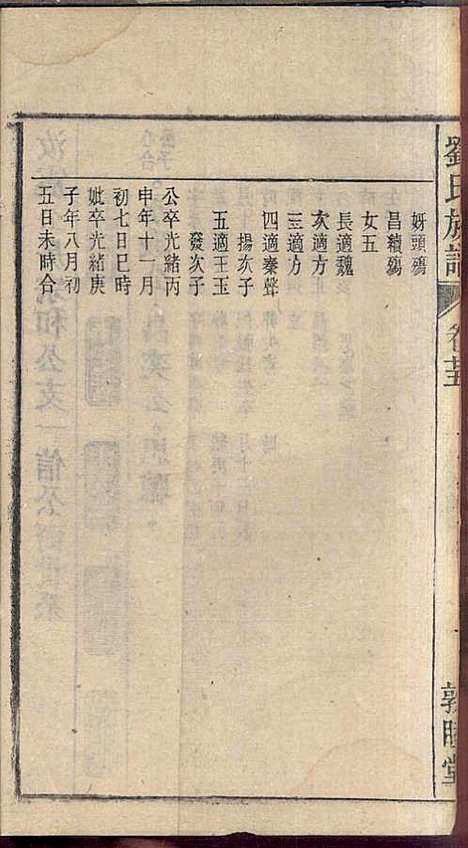 劉氏族譜
卷十五
敦睦堂
妤頭殤
昌續殤
女五
長適魏
次適方
三適方
四適秦聲
揚次子
五適王玉
發次子
公卒光緒丙
申年十一月
初七日巳時
妣卒光緒庚
子年八月初
五日未時合